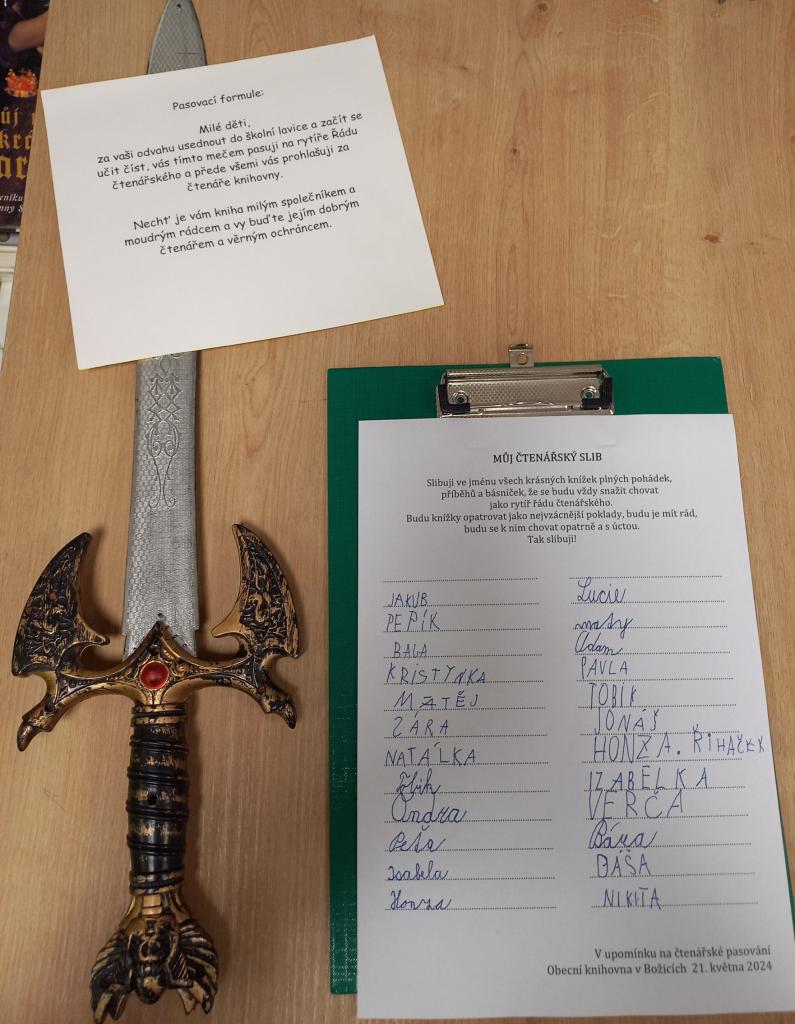 Pasovací formule:
Milé děti,
za vaši odvahu usednout do školní lavice a začít se
učit číst, vás tímto mečem pasuji na rytíře Řádu
čtenářského a přede všemi vás prohlašuji za
čtenáře knihovny.
Nechť je vám kniha milým společníkem a
moudrým rádcem a vy buďte jejím dobrým
čtenářem a věrným ochráncem.
MŮJ ČTENÁŘSKÝ SLIB
Slibuji ve jménu všech krásných knížek plných pohádek,
příběhů a básniček, že se budu vždy snažit chovat
jako rytíř řádu čtenářského.
Budu knížky opatrovat jako nejvzácnější poklady, budu je mít rád,
budu se k nim chovat opatrně a s úctou.
Tak slibuji!
JAKUB
PEPÍK
KRISTÝNKA
MATĚJ
ZÁRA
NATÁLKA
Ondra
Peťa
Isabela
Honza
Lucie
Adam
PAVLA
TOBIK
JONÁŠ
HONZA. ŘIHAČEK
IZABELKA
VERČA
Bára
DÁŠA
NIKITA
V upomínku na čtenářské pasování
Obecní knihovna v Božicích 21. května 2024